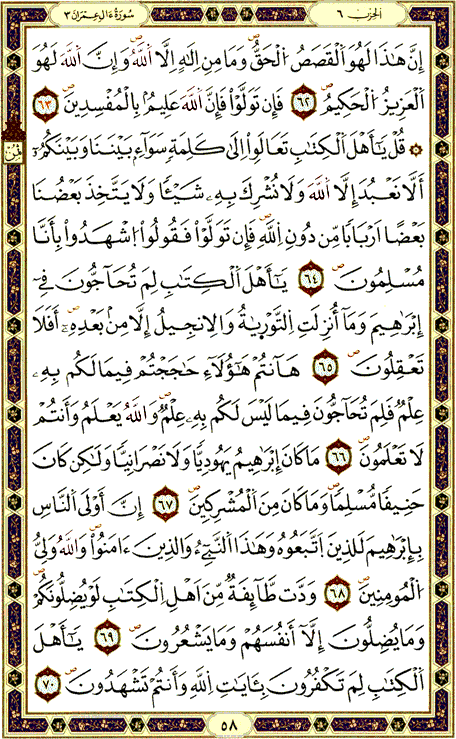 سُورَةُ ءَالِ عِمْرَانَ ٣ الحِزْب ٦
إِنَّ هَٰذَا لَهُوَ اَ۬لْقَصَصُ اُ۬لْحَقُّ وَمَا مِنِ اِلَٰهٍ اِلَّا اَ۬للَّهُ وَإِنَّ اَ۬للَّهَ لَهُوَ
اَ۬لْعَزِيزُ اُ۬لْحَكِيمُ ٦٢ فَإِن تَوَلَّوْاْ فَإِنَّ اَ۬للَّهَ عَلِيمُۢ بِالْمُفْسِدِينَ ٦٣
۞ قُلْ يَٰٓأَهْلَ اَ۬لْكِتَٰبِ تَعَالَوِاْ اِلَىٰ كَلِمَةٖ سَوَآءِۢ بَيْنَنَا وَبَيْنَكُمُۥٓ
أَلَّا نَعْبُدَ إِلَّا اَ۬للَّهَ وَلَا نُشْرِكَ بِهِۦ شَيْـٔٗا وَلَا يَتَّخِذَ بَعْضُنَا
بَعْضًا اَرْبَابٗا مِّن دُونِ اِ۬للَّهِ فَإِن تَوَلَّوْاْ فَقُولُواْ اُ۪شْهَدُواْ بِأَنَّا
مُسْلِمُونَ ٦٤ يَٰٓأَهْلَ اَ۬لْكِتَٰبِ لِمَ تُحَآجُّونَ فِےٓ
إِبْرَٰهِيمَ وَمَآ أُنزِلَتِ اِ۬لتَّوْر۪يٰةُ وَالِانجِيلُ إِلَّا مِنۢ بَعْدِهِۦٓ أَفَلَا
تَعْقِلُونَ ٦٥ هَآنتُمْ هَٰٓؤُلَآءِ حَٰجَجْتُمْ فِيمَا لَكُم بِهِۦ
عِلْمٞ فَلِمَ تُحَآجُّونَ فِيمَا لَيْسَ لَكُم بِهِۦ عِلْمٞ وَاللَّهُ يَعْلَمُ وَأَنتُمْ
لَا تَعْلَمُونَ ٦٦ مَا كَانَ إِبْرَٰهِيمُ يَهُودِيّٗا وَلَا نَصْرَانِيّٗا وَلَٰكِن كَانَ
حَنِيفٗا مُّسْلِمٗا وَمَا كَانَ مِنَ اَ۬لْمُشْرِكِينَ ٦٧ إِنَّ أَوْلَى اَ۬لنَّاسِ
بِإِبْرَٰهِيمَ لَلذِينَ اَ۪تَّبَعُوهُ وَهَٰذَا اَ۬لنَّبِےٓءُ وَالذِينَ ءَامَنُواْ وَاللَّهُ وَلِيُّ
اُ۬لْمُومِنِينَ ٦٨ وَدَّت طَّآئِفَةٞ مِّنَ اَهْلِ اِ۬لْكِتَٰبِ لَوْ يُضِلُّونَكُمْ
وَمَا يُضِلُّونَ إِلَّآ أَنفُسَهُمْ وَمَا يَشْعُرُونَ ٦٩ يَٰٓأَهْلَ
اَ۬لْكِتَٰبِ لِمَ تَكْفُرُونَ بِـَٔايَٰتِ اِ۬للَّهِ وَأَنتُمْ تَشْهَدُونَ ٧٠
٥٨